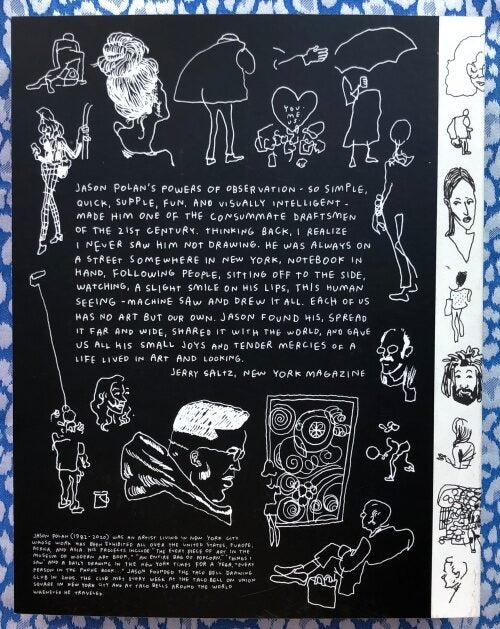 YOU
ME
US
JASON POLAN'S POWERS OF OBSERVATION - SO SIMPLE,
QUICK, SUPPLE, FUN, AND VISUALLY INTELLIGENT -
MADE HIM ONE OF THE CONSUMMATE DRAFTSMEN
OF THE 21ST CENTURY. THINKING BACK, I REALIZE
I NEVER SAW HIM NOT DRAWING. HE WAS ALWAYS ON
A STREET SOMEWHERE IN NEW YORK, NOTEBOOK IN
HAND, FOLLOWING PEOPLE, SITTING OFF TO THE SIDE,
WATCHING, A SLIGHT SMILE ON HIS LIPS, THIS HUMAN
SEEING-MACHINE SAW AND DREW IT ALL. EACH OF US
HAS NO ART BUT OUR OWN. JASON FOUND HIS, SPREAD
IT FAR AND WIDE, SHARED IT WITH THE WORLD, AND GAVE
US ALL HIS SMALL JOYS AND TENDER MERCIES OF A
LIFE LIVED IN ART AND LOOKING.
JERRY SALTZ, NEW YORK MAGAZINE
JASON POLAN (1982-2020) WAS AN ARTIST LIVING IN NEW YORK CITY
WHOSE WORK HAS BEEN EXHIBITED ALL OVER THE UNITED STATES, EUROPE,
AFRICA, AND ASIA. HIS PROJECTS INCLUDE "THE EVERY PIECE OF ART IN THE
MUSEUM OF MODERN ART BOOK," "AN ENTIRE BAG OF POPCORN," "THINGS I
SAW AND A DAILY DRAWING IN THE NEW YORK TIMES FOR A YEAR," "EVERY
PERSON IN THE PHONE BOOK..." JASON FOUNDED THE TACO BELL DRAWING
CLUB IN 2005. THE CLUB MET EVERY WEEK AT THE TACO BELL ON UNION
SQUARE IN NEW YORK CITY AND AT TACO BELLS AROUND THE WORLD
WHENEVER HE TRAVELED.